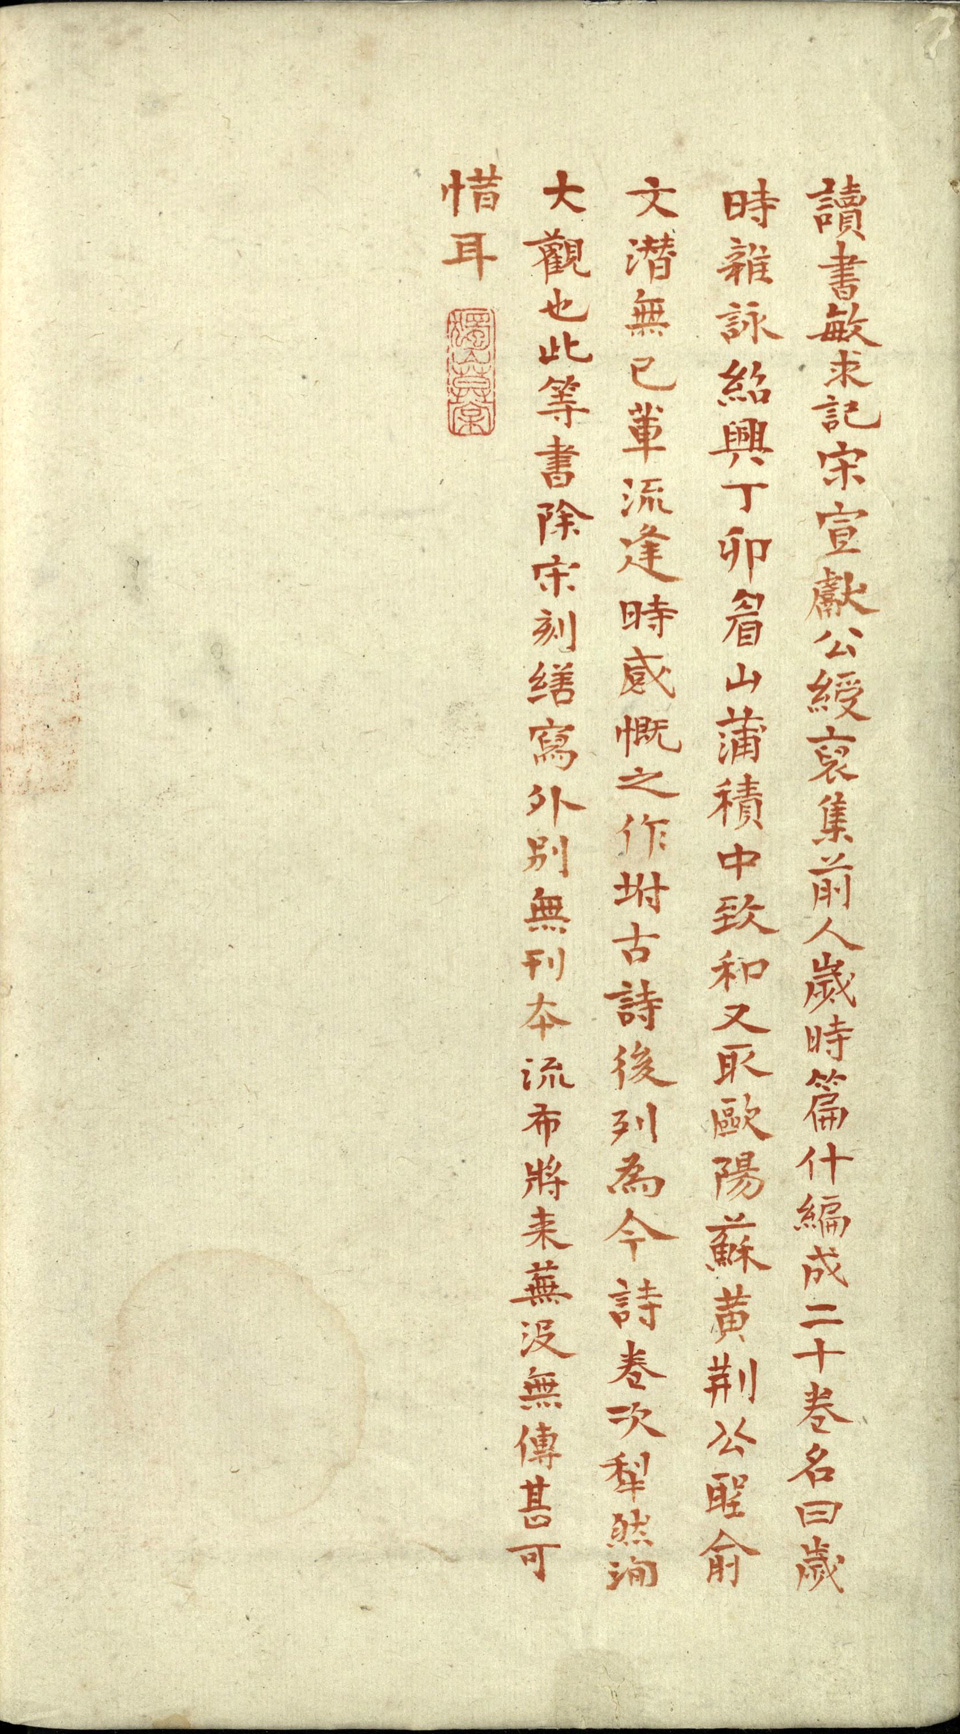 讀書敏求記宋宣獻公綬裒集前人歲時篇什編成二十卷名曰歲
時雜詠紹興丁卯眉山蒲積中致和又取歐陽蘇黃荆公聖俞
文潜無已軰流逢時感慨之作坿古詩後列為今詩卷次犁然洵
大觀也此等書除宋刻繕寫外別無刊本流布將来蕪没無傳甚可
惜耳